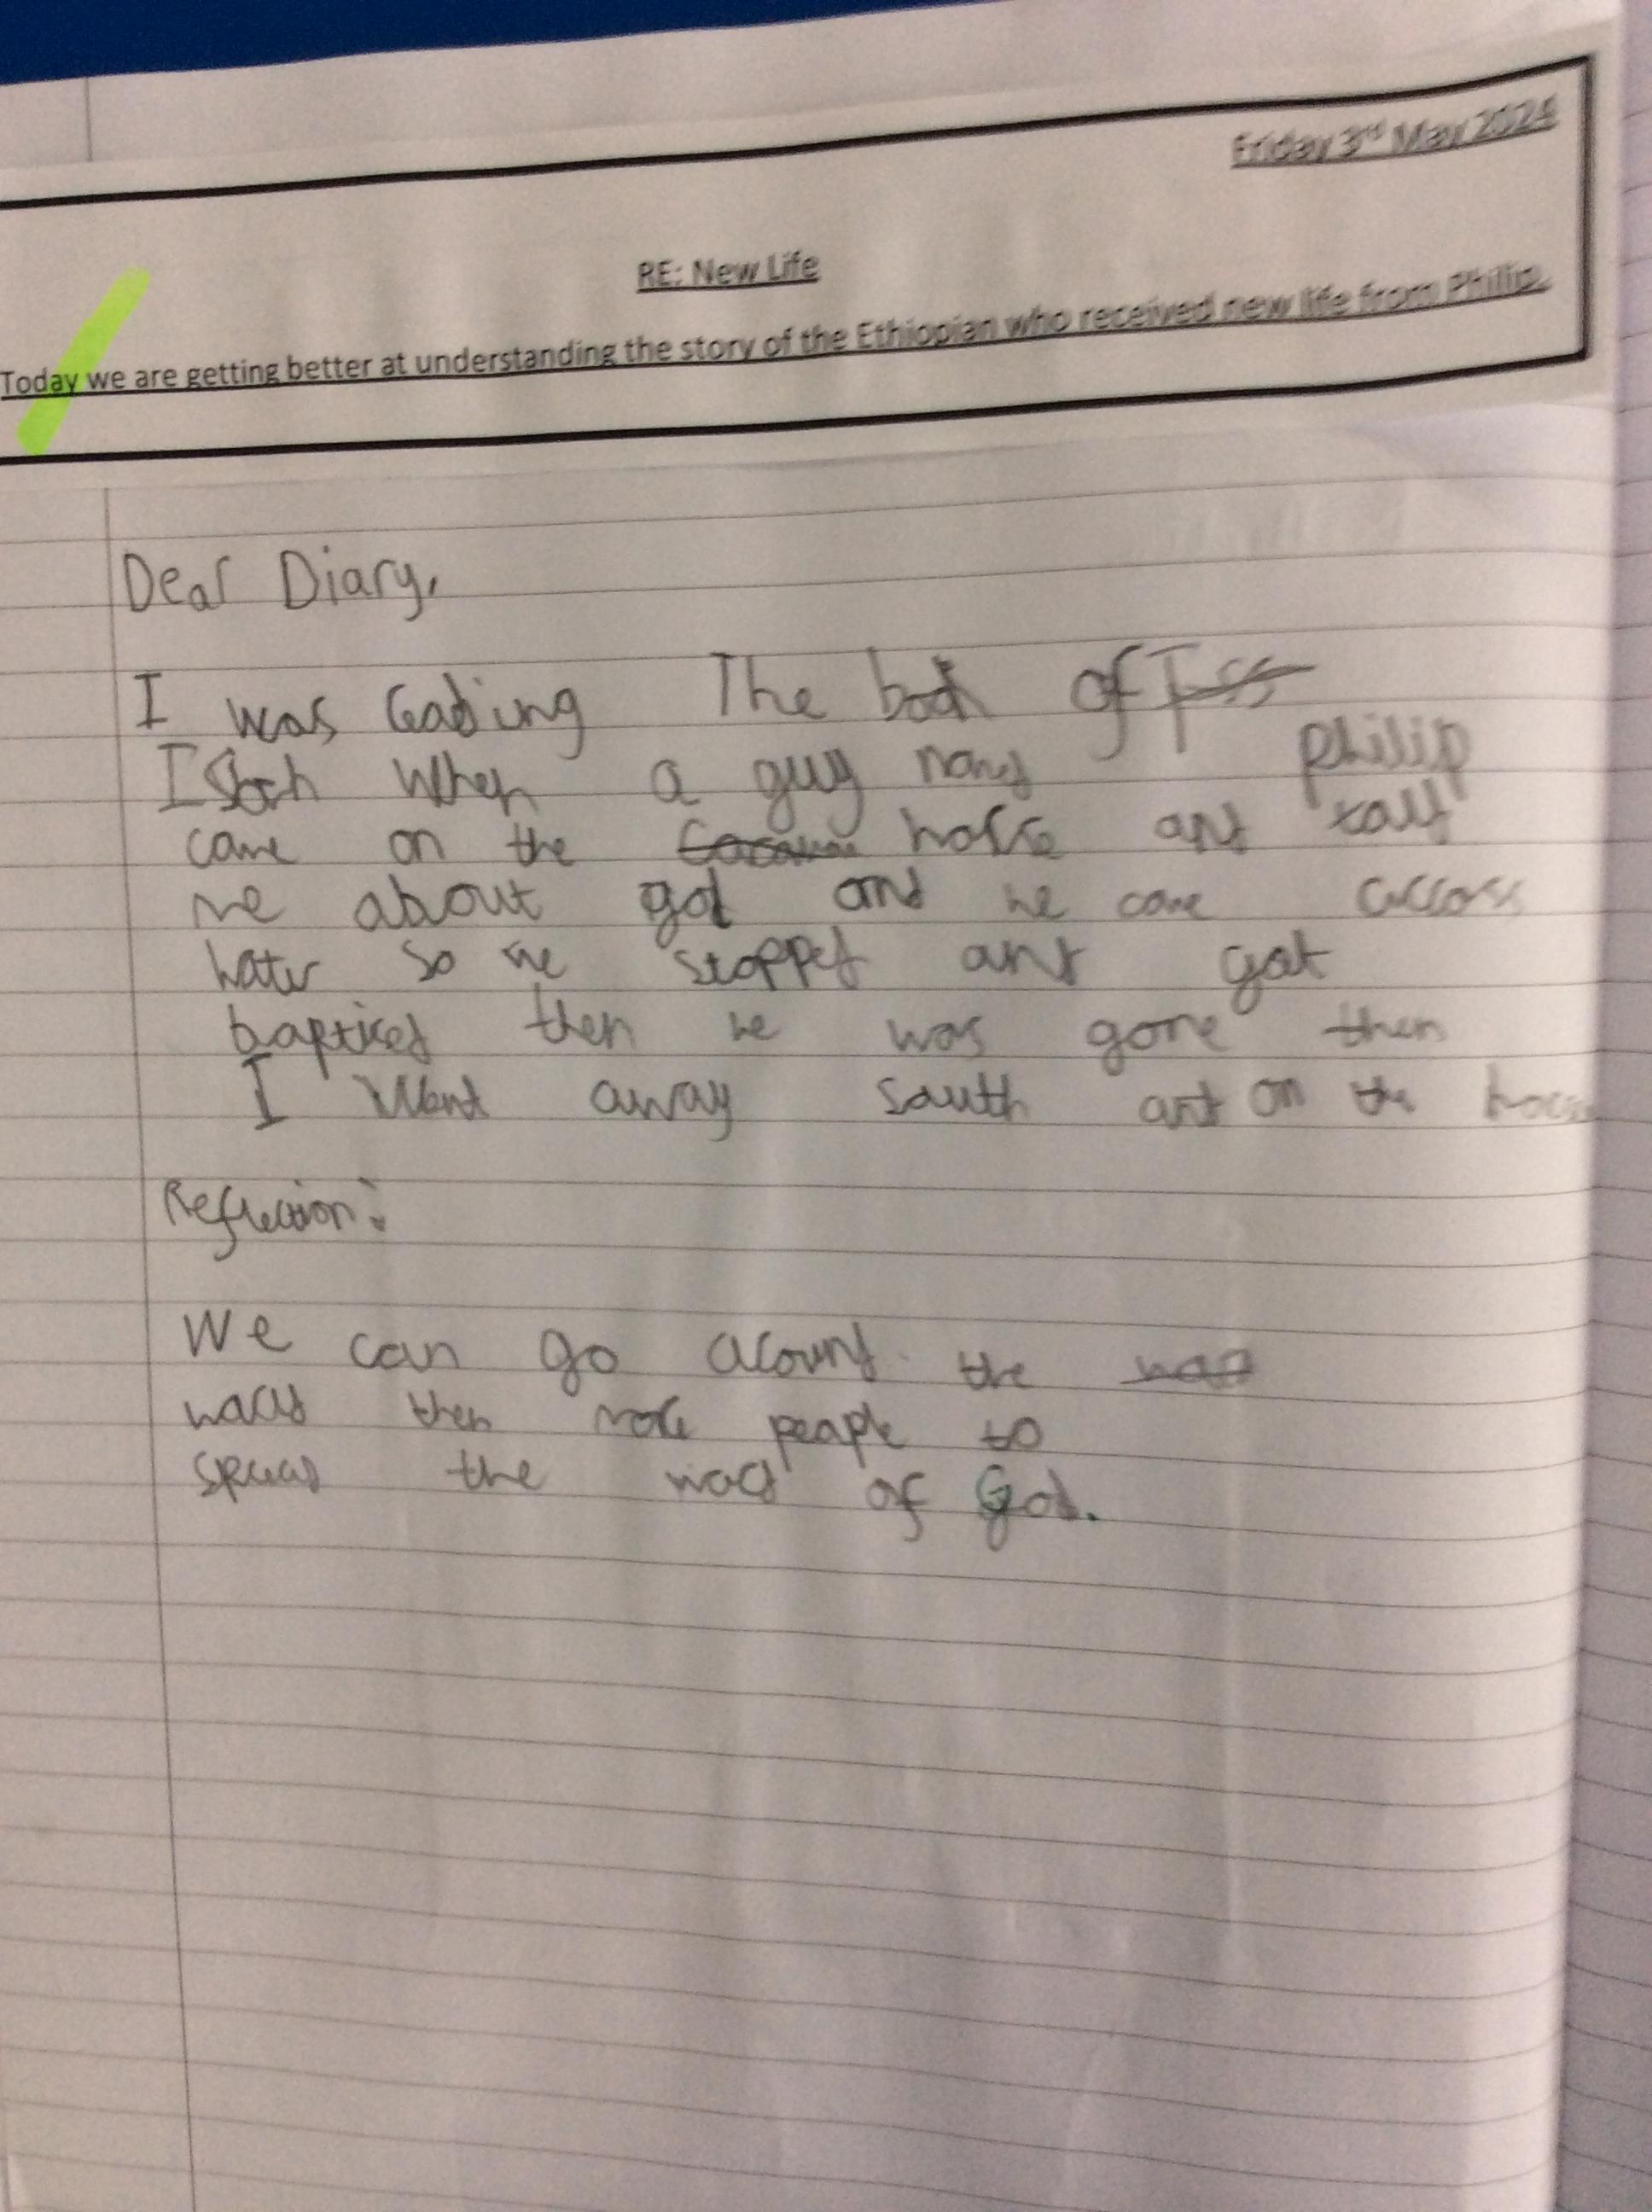 Friday 3rd May 2024
RE: New Life
Today we are getting better at understanding the story of the Ethiopian who received new life from Philip.
Dear Diary,
I was reading The book of
when a guy philip
came on the horse and
me about god and he came across
water so we stopped and got
baptised then he was gone then
I Went away south and on the
Reflection:
We can go around the
then more people to
spread the word of God.